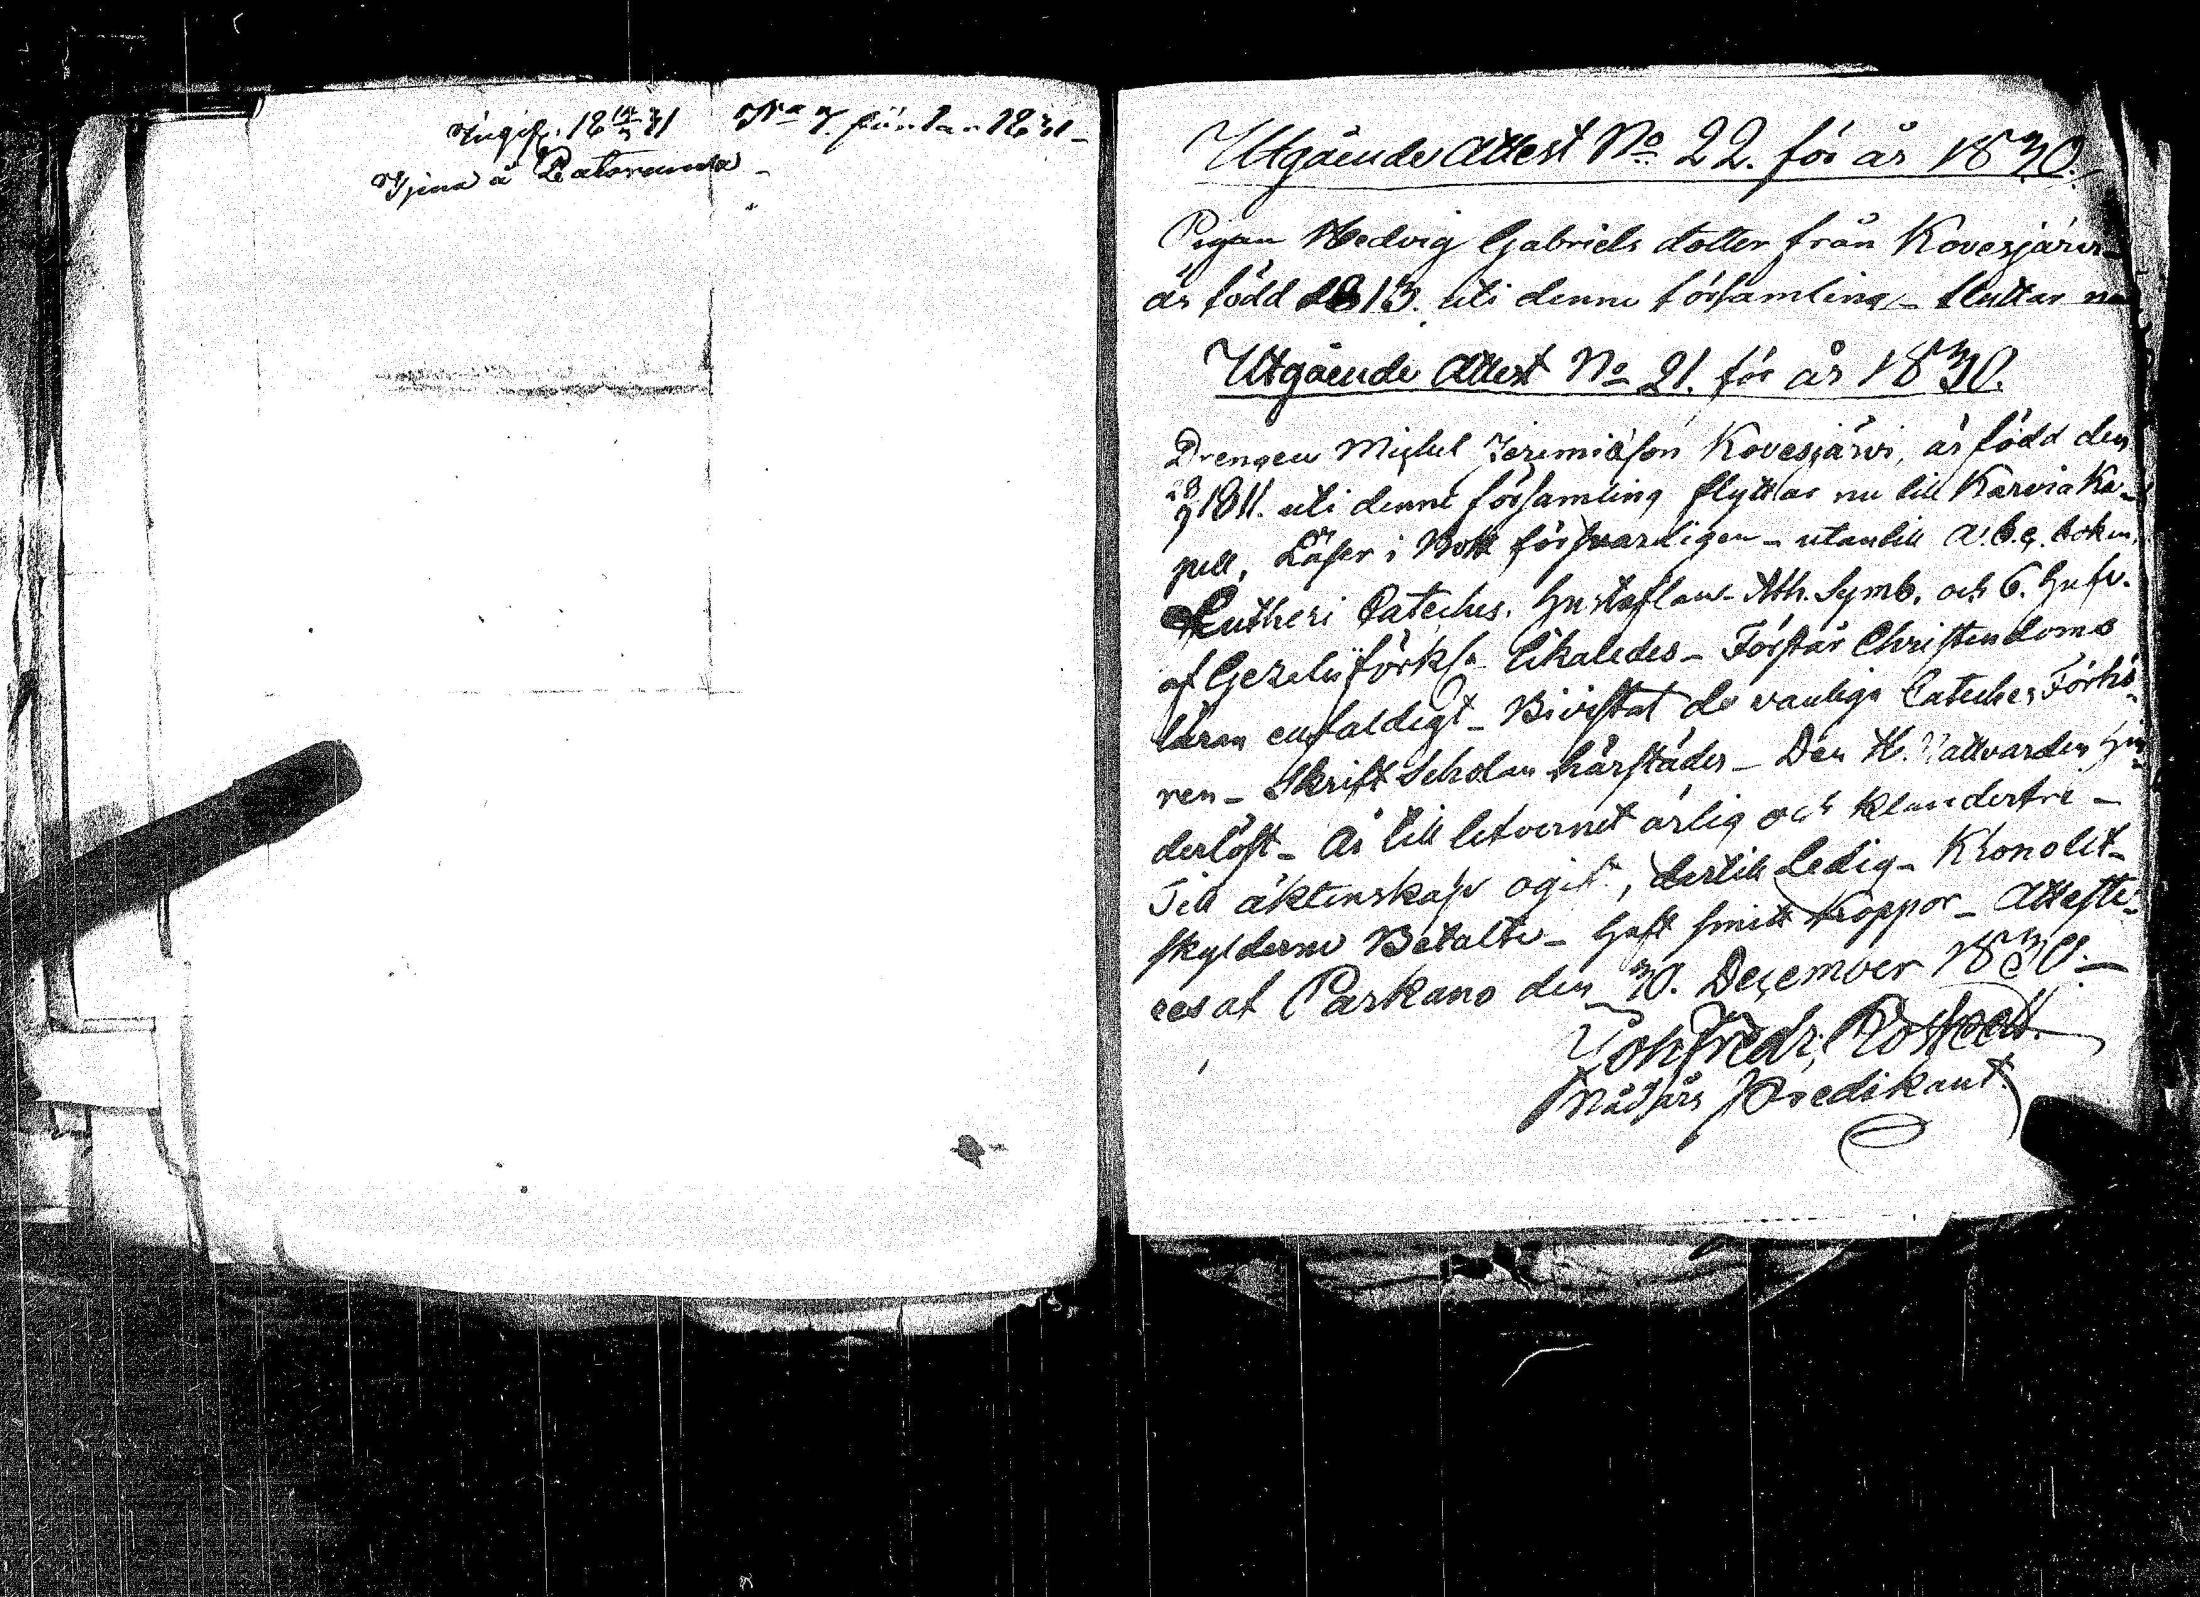 Ingift. 18 14/3 31
No 7. för 1831 –
Tjena å
Utgående Attest No 22. för år 1830.
Pigan Hedvig Gabriels dotter från Kovesjärvi
är född 1813. uti denna församling – fluttar nu
Utgående Attest No 21. för år 1830.
Drengen Michel Jeremiæson Kovesjärvi, är född den
28/9 1811. uti denne församling flyttar nu till Karvia Ka-
pell. Läser i Bok försvarligen – utantill A.b.c. boken,
Lutheri Cateches. Hustaflan – Ath. Symb. och 6. Hufv.
af Gezelii förkl. likaledes – Förstår Christendoms
läran enfaldigt – Bivistat de vanliga Cateches Förhö-
ren – Skrift Scholan härstädes – Den H. Nattvarden hin-
derlöst – Är till lefvernet ärlig och klanderfri –
Till äktenskap ogift, dertill Ledig – Kronout-
skylderne Betalte – Haft smitt Koppor – Atteste-
res af Parkano den 30. December 1830. –
Joh Fredr. Roskell
Nådårs Predikant.